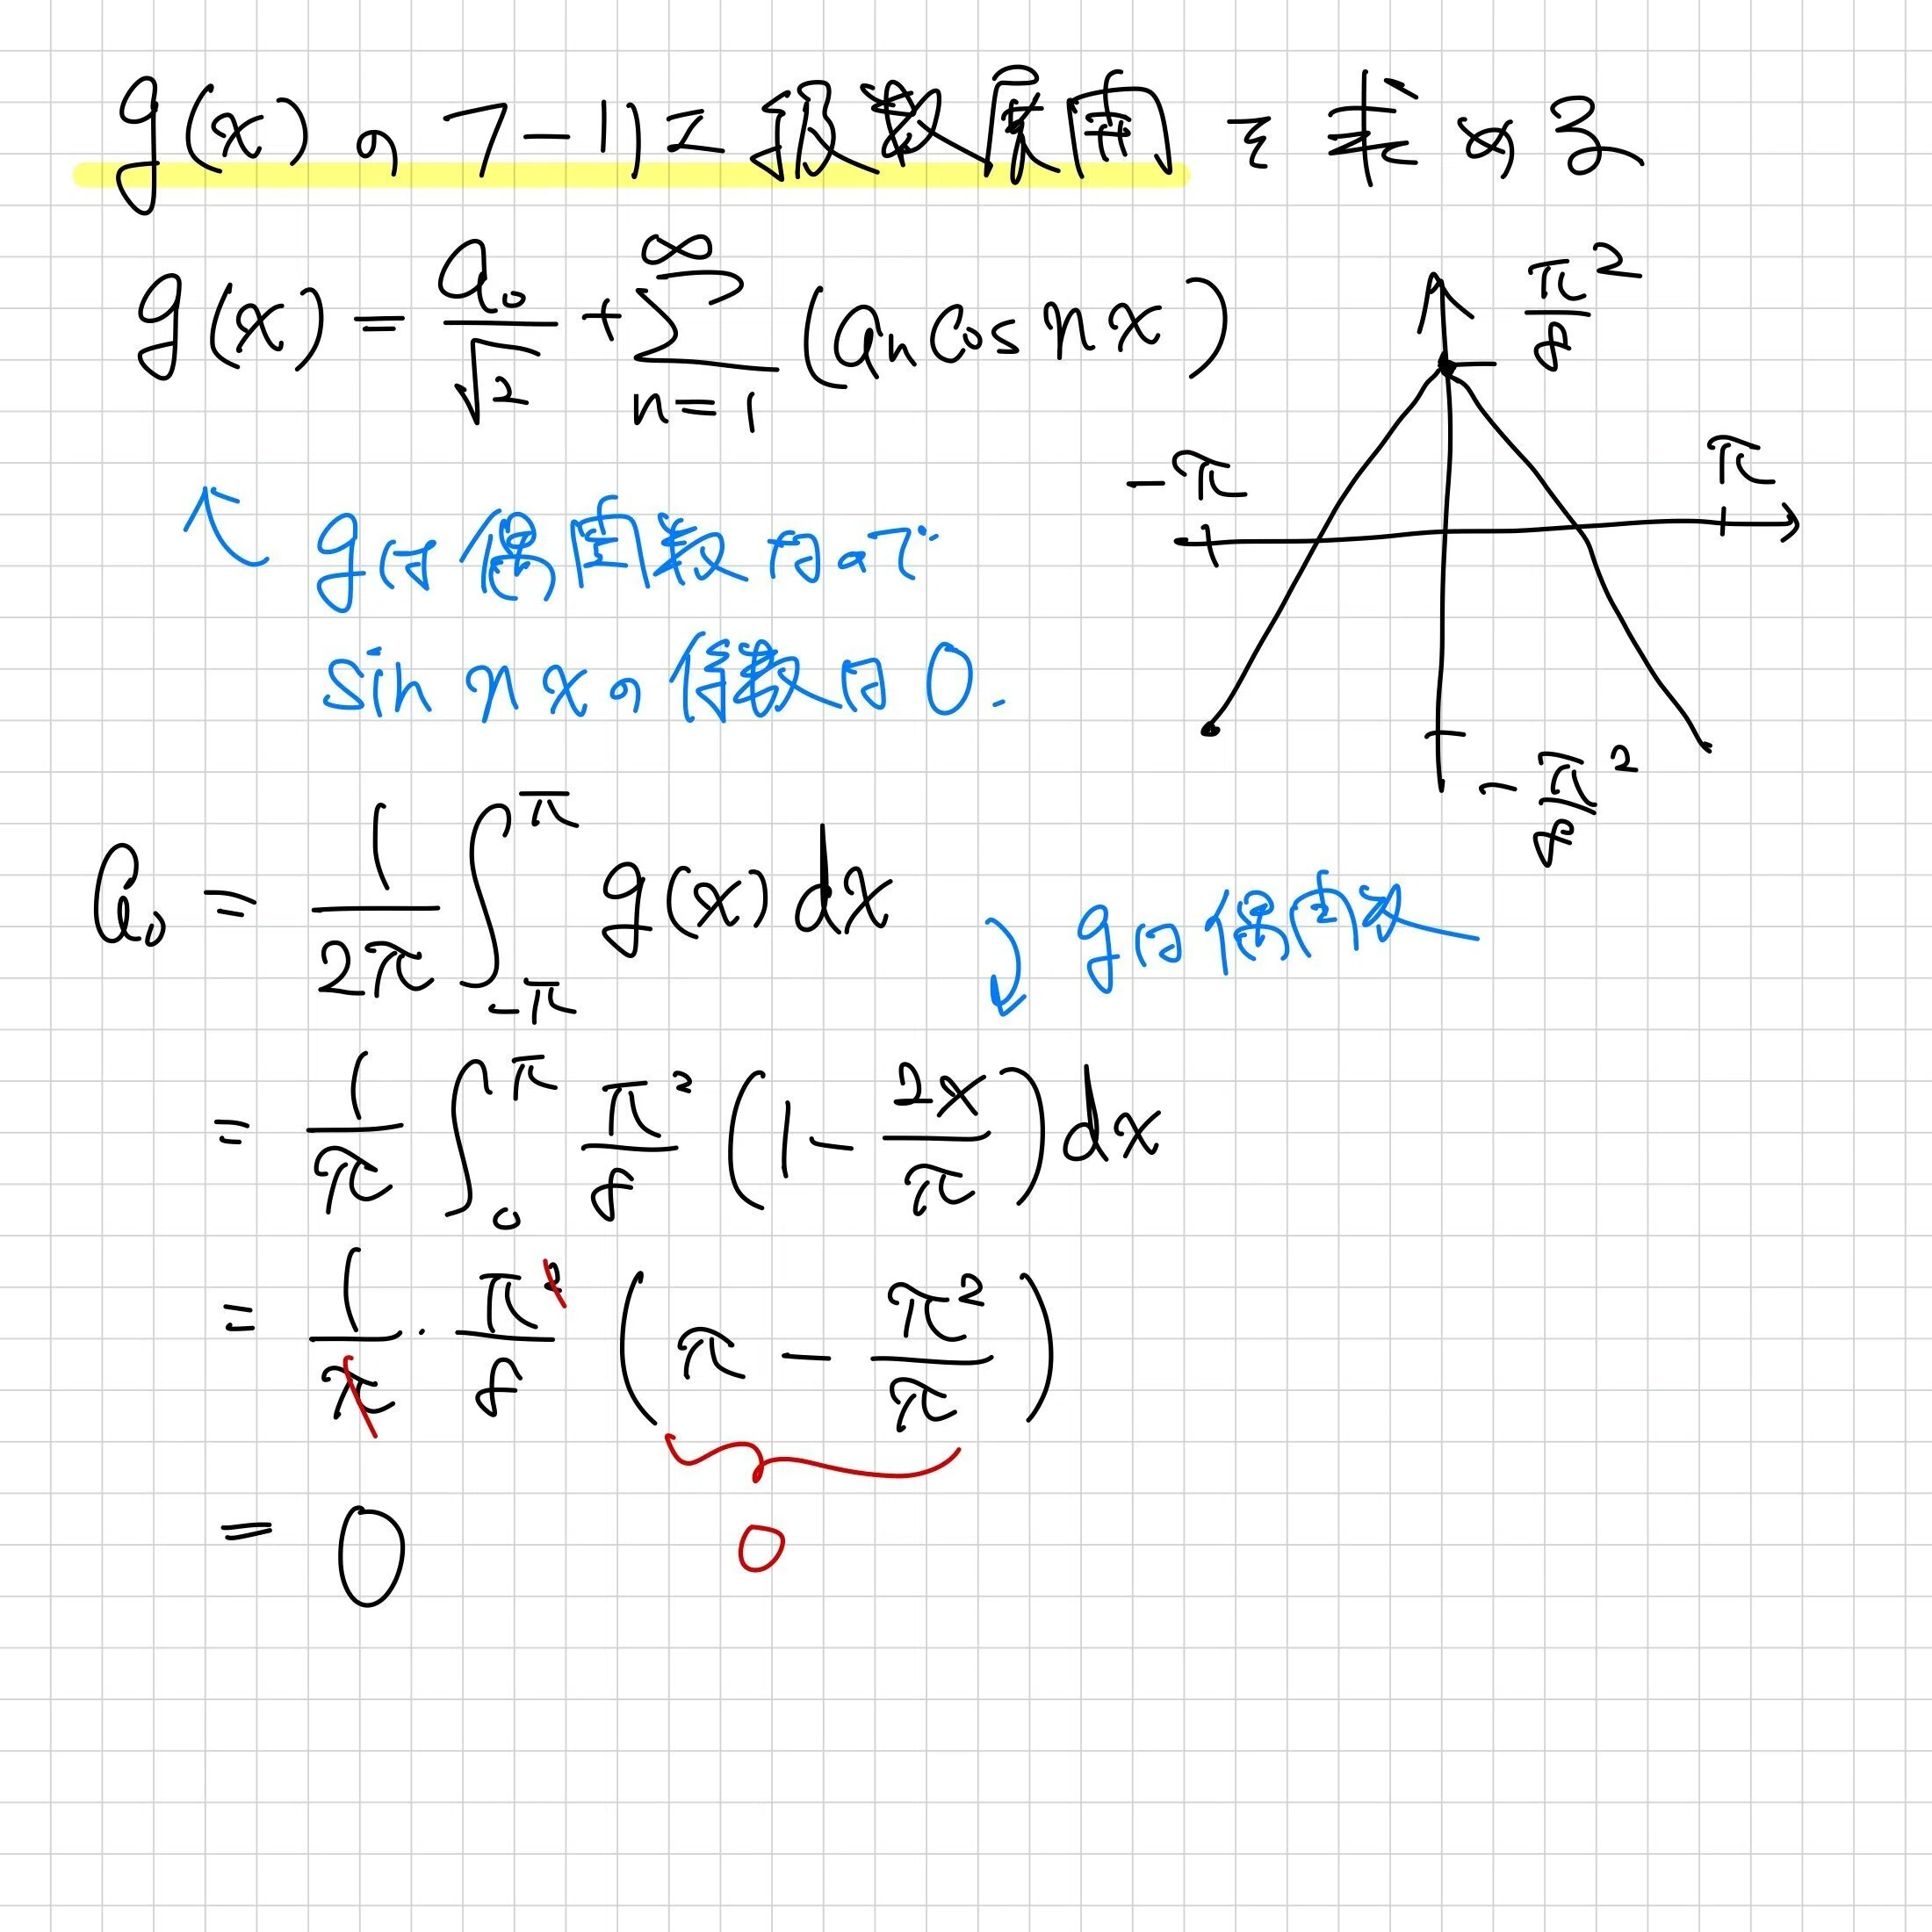 g(x)のフーリエ級数展開を求める
g(x) = a₀/√2 + ∞Σn=1 (an cos nx)
π²/8
-π
π
-π²/8
gは偶関数なので
sin nxの係数は0.
a₀ = 1/2π ∫-π^π g(x)dx
gは偶関数
= 1/π ∫0^π π²/8 (1 - 2x/π) dx
= 1/π · π²/8 (π - π²/π)
0
= 0